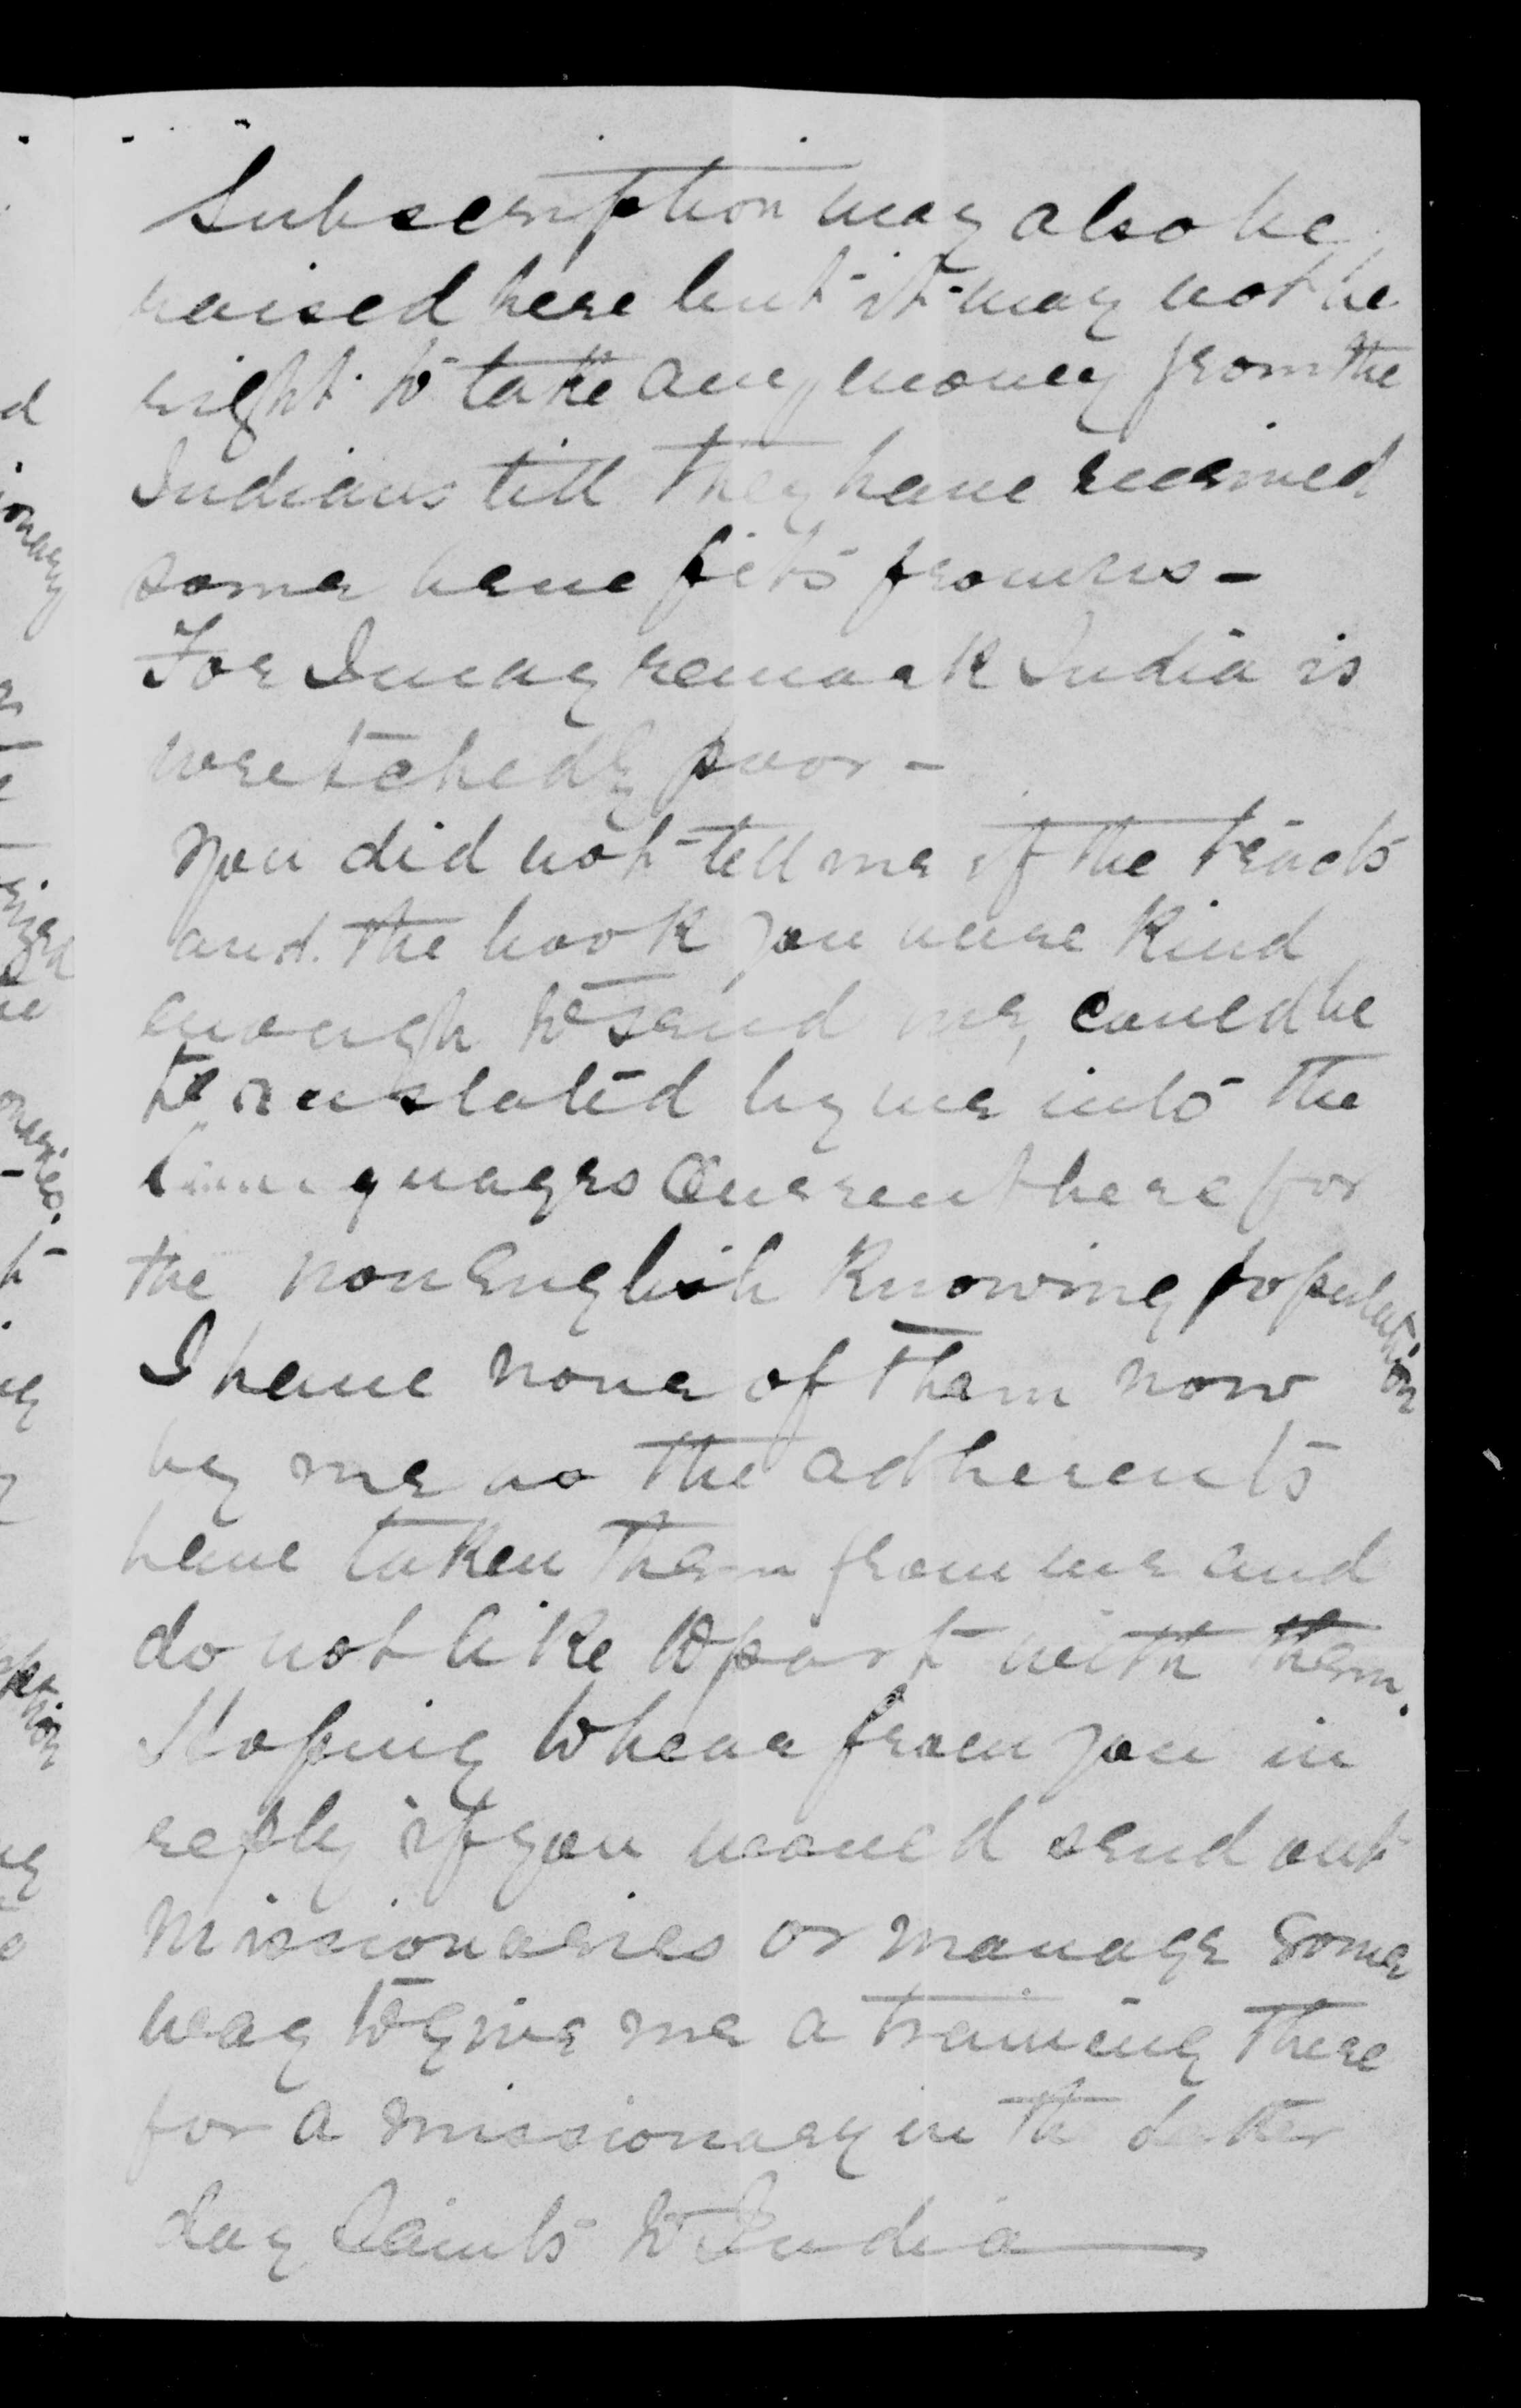 Subscription may also be
raised here but it may not be
right to take any money from the
Indians till they have received
some benefits from us -
For I may remark India is
wretchedly poor -
You did not tell me if the tracts
and the book you were kind
enough to send me, could be
translated by me into the
languages current here for
the non English knowing population
I have none of them now
by me as the adherents
have taken them from me and
do not like to part with them.
Hoping to hear from you in
reply if you would send out
missionaries or manage some
way to give me a training there
for a missionary in the Latter
day Saints to India